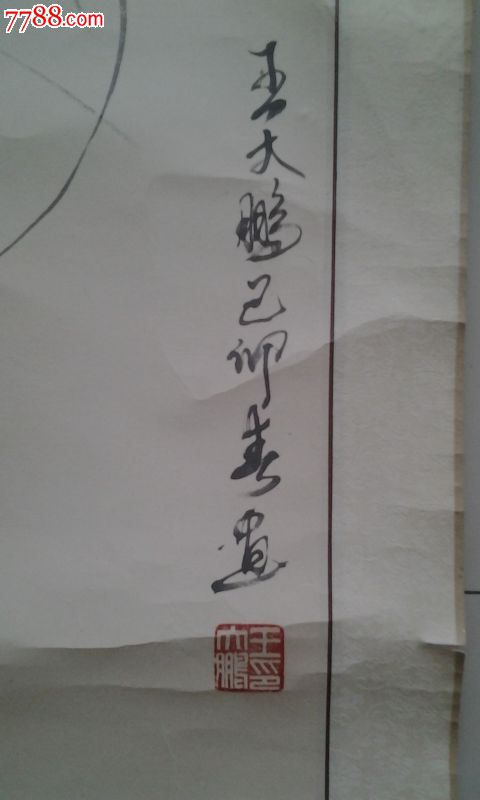 7788.com
王大鹏己卯春画
王印大鹏